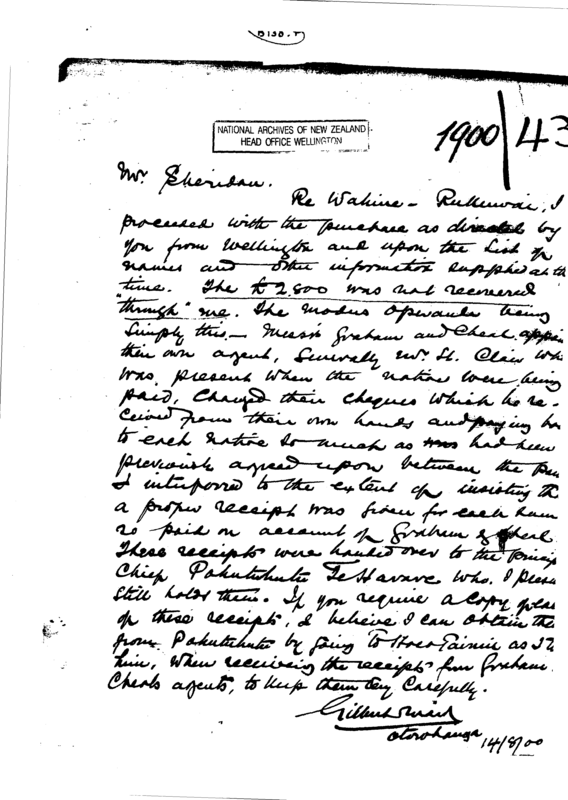 NATIONAL ARCHIVES OF NEW ZEALAND
HEAD OFFICE WELLINGTON
1900/43
Mr. Sheridan.
Re Wahine - I
proceeded with the purchase as directed by
you from Wellington and upon the List of
names and other information supplied at th
time. The £2,800 was not recovered
"through" me. The Modus Operandi being
Simply this - Messrs Graham and Cheal
their own agent, Generally Mr. St. Clair who
was present when the natives were being
paid, Changed their cheques which he re-
ceived from their own hands and paying
to each native so much as had been
previously agreed upon between the
I interferred to the extent of insisting th
a proper receipt was given for each sum
so paid on account of Graham & Cheal
These receipts were handed over to the
Chief Te who, I
still holds them. If you require a Copy
of these receipts, I believe I can obtain the
from by going to as I
him, when receiving the receipts from Graham
Cheals agents, to keep them very carefully.
Otorohanga 14/8/00